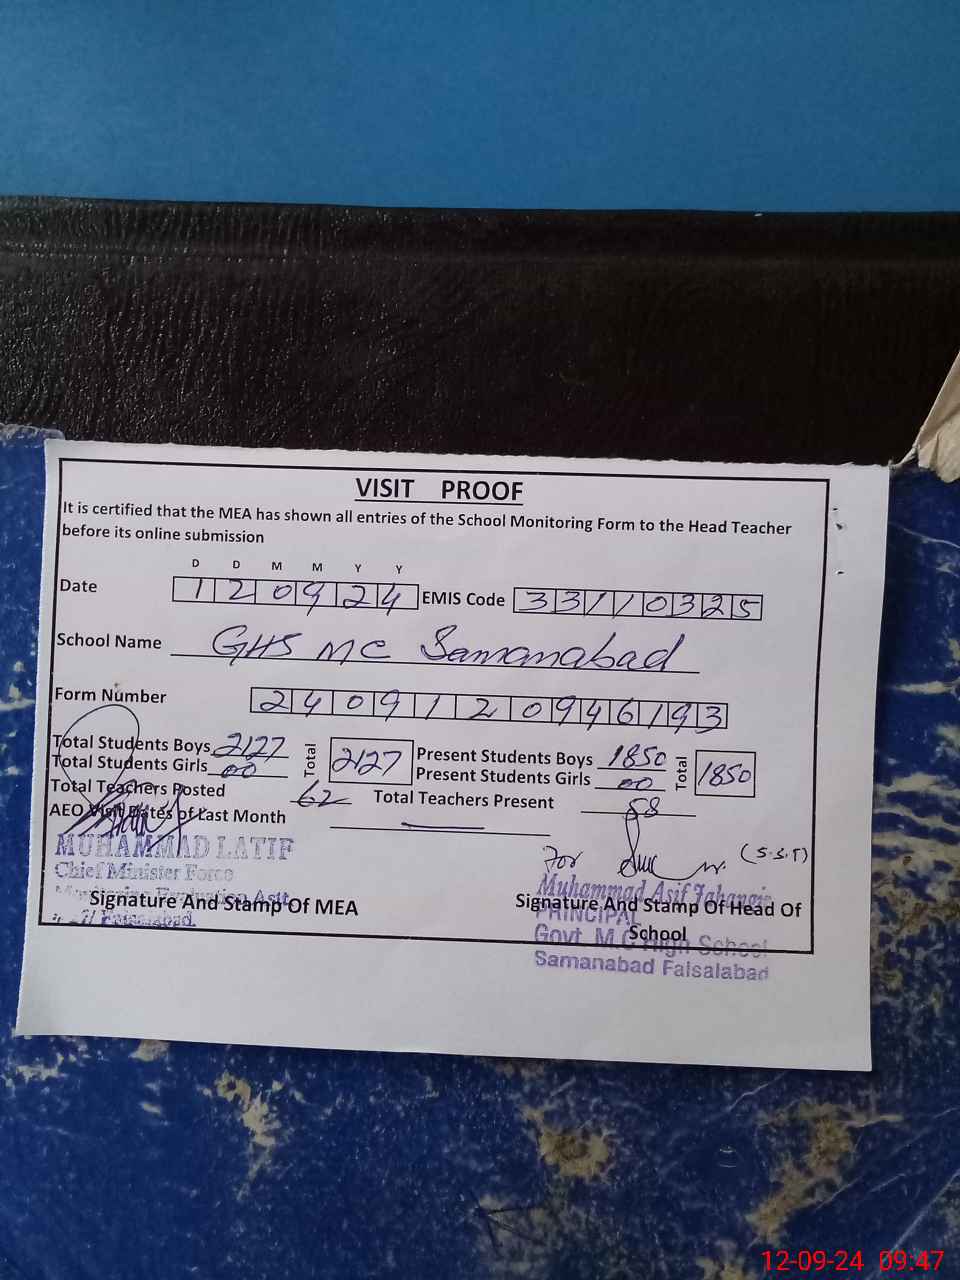 VISIT PROOF
It is certified that the MEA has shown all entries of the School Monitoring Form to the Head Teacher
before its online submission
D D M M Y Y
Date 120924 EMIS Code 33110325
School Name GHS MC Samanabad
Form Number 240912094693
Total Students Boys 2127 Total 2127 Present Students Boys 1850 Total 1850
Total Students Girls 00 Present Students Girls 00
Total Teachers Posted 62 Total Teachers Present 58
AEO Visit Dates of Last Month —
For (S.S.T)
MUHAMMAD LATIF
Chief Minister Force
Monitoring Evaluation Astt
Faisalabad.
Signature And Stamp Of MEA
Muhammad Asif Jahangir
PRINCIPAL
Govt. M.C High School
Samanabad Faisalabad
Signature And Stamp Of Head Of
School
12-09-24 09:47